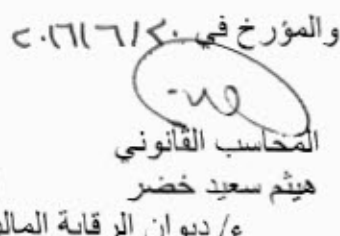 والمؤرخ في ٢٠١٦/٦/٢٠
المحاسب القانوني
هيثم سعيد خضر
ع/ ديوان الرقابة المال